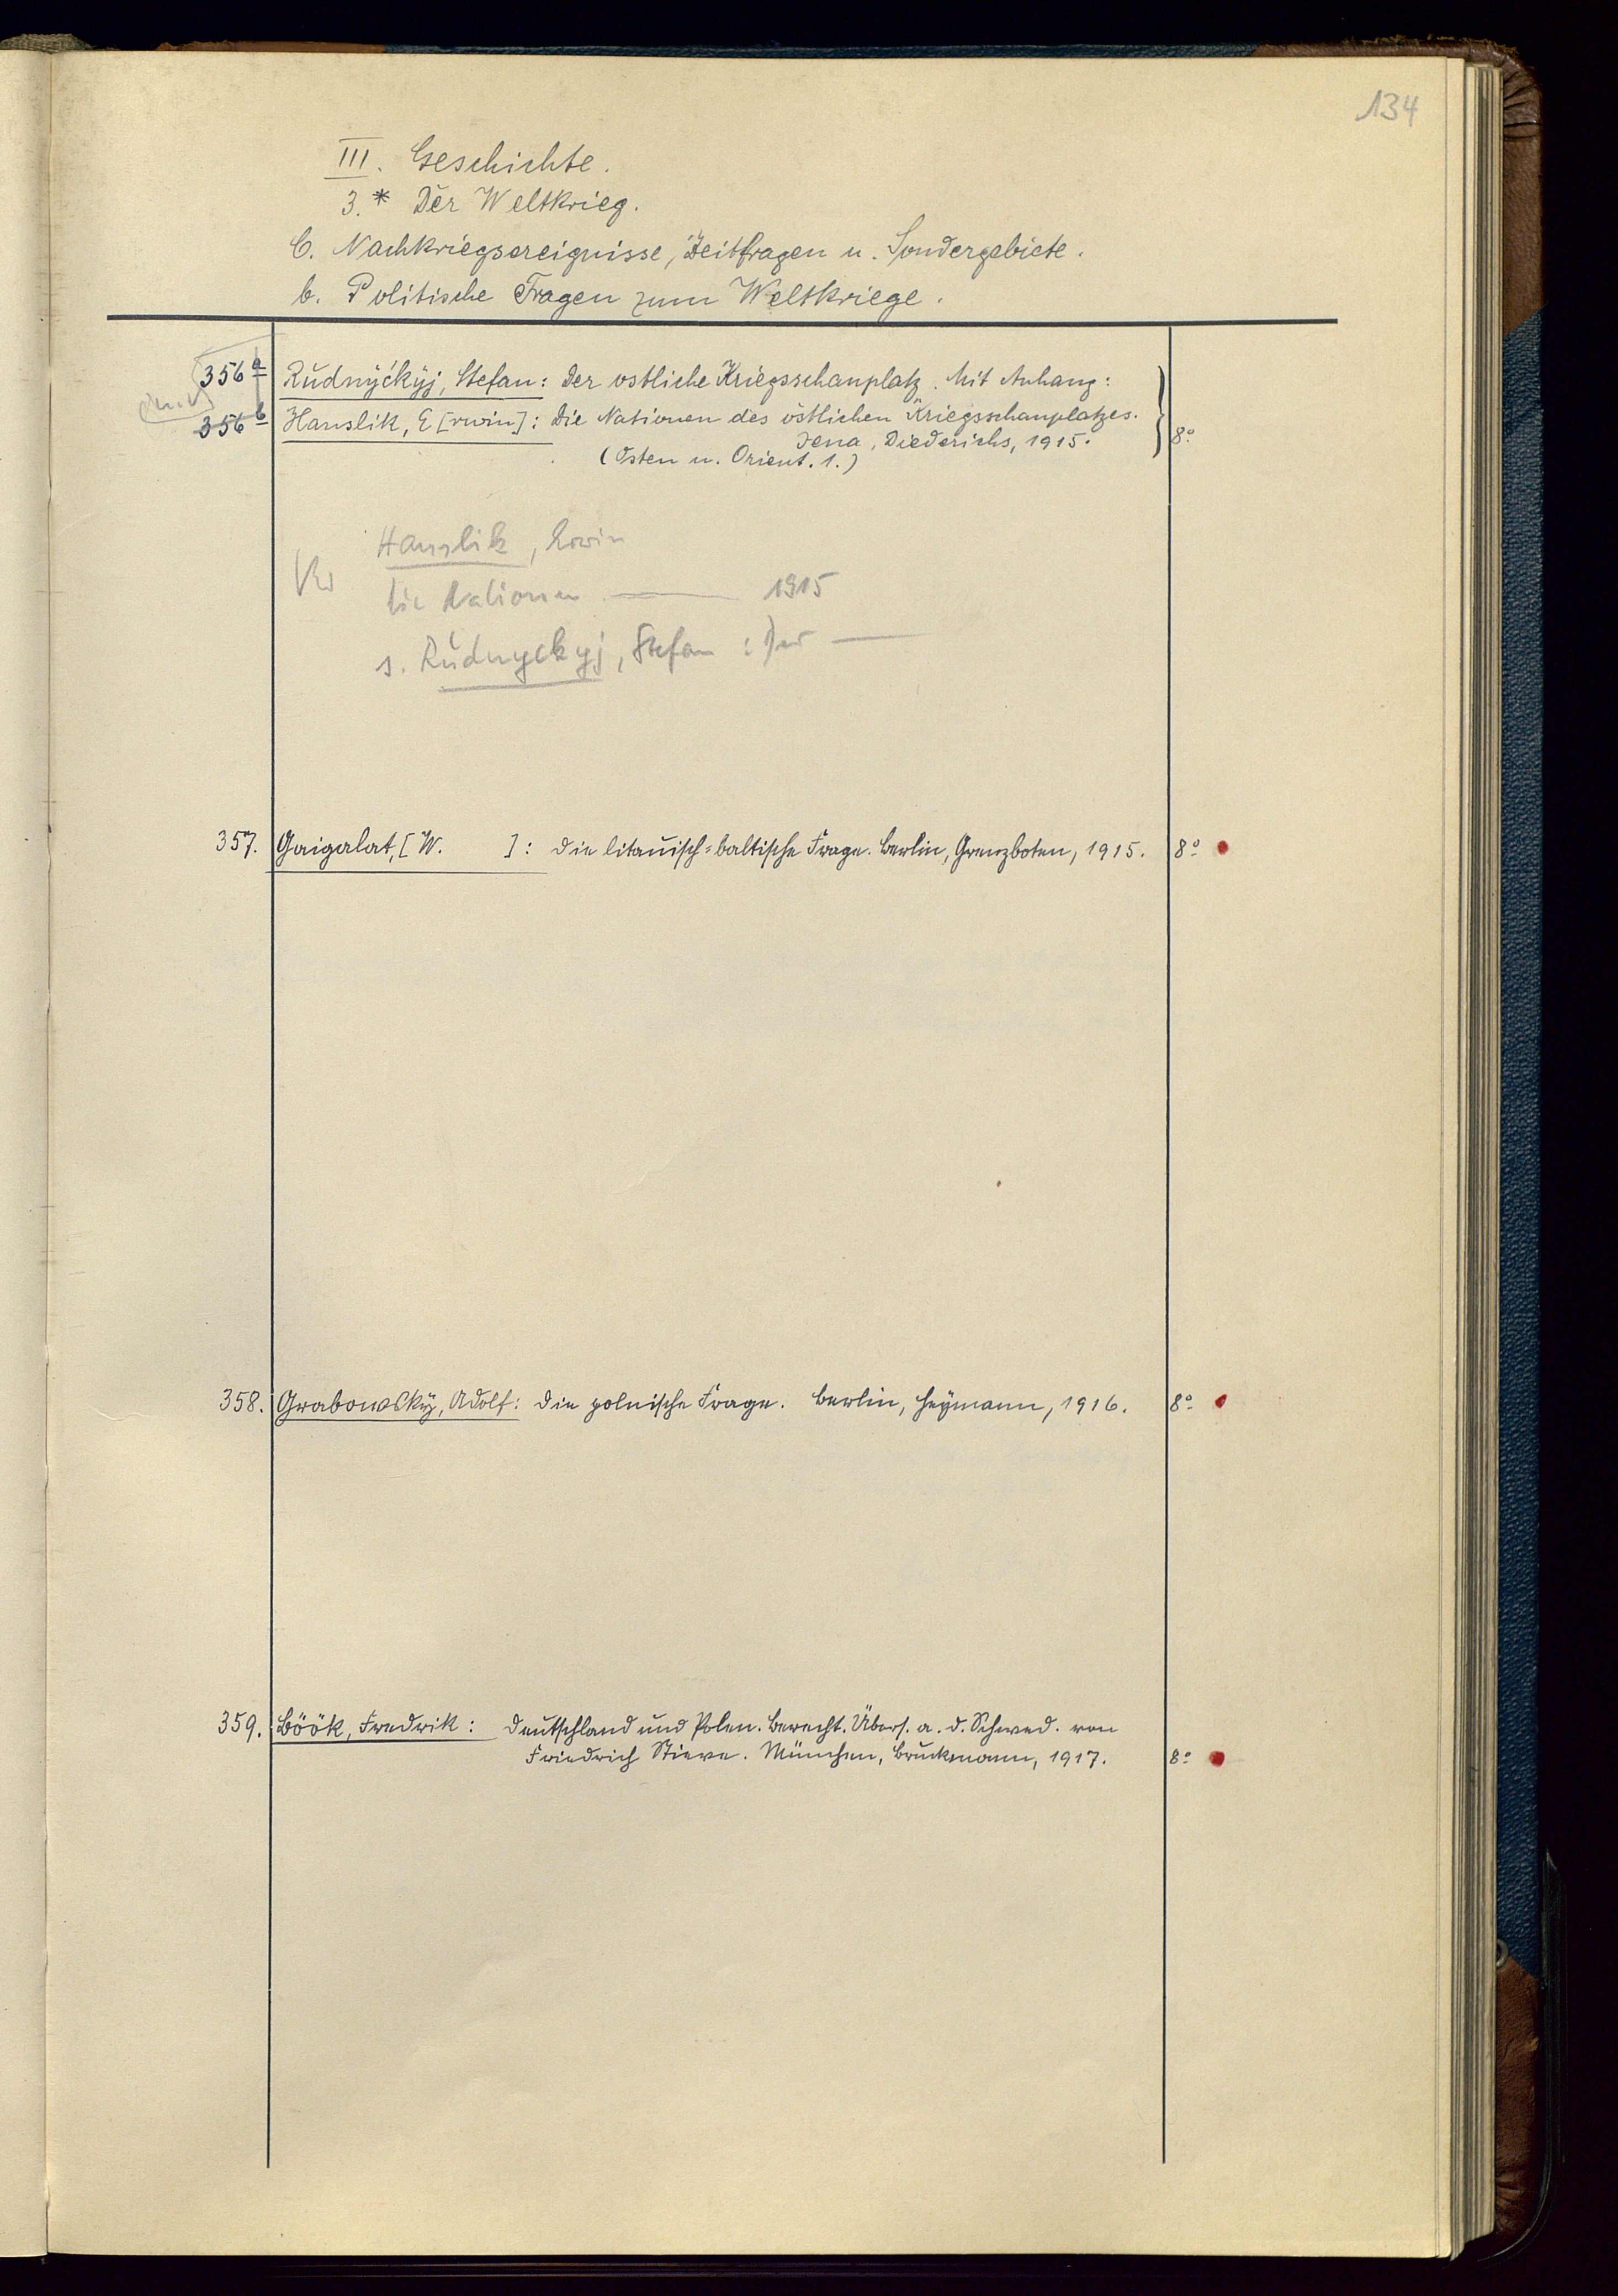 134
III. Geschichte.
3.* Der Weltkrieg.
C. Nachkriegsereignisse, Zeitfragen u. Sondergebiete.
b. Politische Fragen zum Weltkriege.
356a Rudnyćkyj, Stefan: Der östliche Kriegsschauplatz. Mit Anhang:
356b Hanslik, E[rwin]: Die Nationen des östlichen Kriegsschauplatzes.
Jena, Diederichs, 1915. 8°
(Osten u. Orient. 1.)
Hanslik, Erwin
Die Nationen — 1915
s. Rudnyckyj, Stefan: Der —
357. Gaigalat, [W. ]: Die litauisch=baltische Frage. Berlin, Grenzboten, 1915. 8°
358. Grabowsky, Adolf: Die polnische Frage. Berlin, Heymann, 1916. 8°
359. Böök, Fredrik: Deutschland und Polen. Berecht. Übers. a. d. Schwed. von
Friedrich Stieve. München, Bruckmann, 1917. 8°